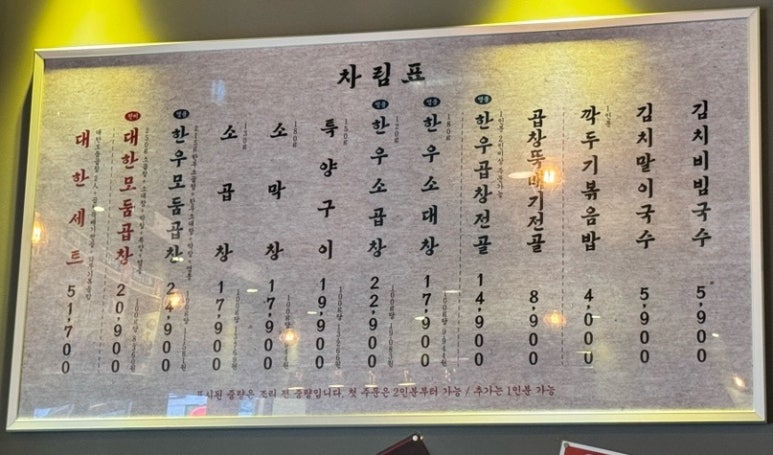 차림표
대한세트 51,700
대한모둠곱창 20,900
명품 한우모둠곱창 24,900
소곱창 130g 17,900
소막창 180g 17,900
특양구이 150g 19,900
명품 한우소곱창 120g 22,900
명품 한우소대창 180g 17,900
명품 한우곱창전골 14,900
1인분 2인이상 주문가능
곱창뚝배기전골 8,900
깍두기볶음밥 1인분 4,000
김치말이국수 5,900
김치비빔국수 5,900
표시된 중량은 조리 전 중량입니다. 첫 주문은 2인분부터 가능 / 추가는 1인분 가능